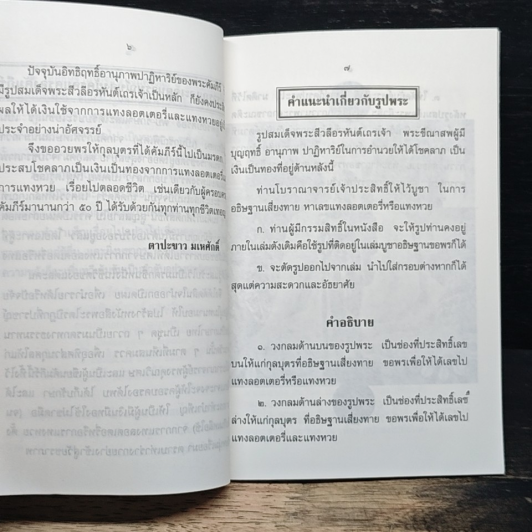 ๖
ปัจจุบันอิทธิฤทธิ์อานุภาพปาฏิหาริย์ของพระคัมภีร์
มีรูปสมเด็จพระสีวลีอรหันต์เถรเจ้าเป็นหลัก ก็ยังคงประ
ผลให้ได้เงินใช้จากการแทงลอตเตอรี่และแทงหวยอยู่
ประจำอย่างน่าอัศจรรย์
จึงขออวยพรให้กุลบุตรที่ได้คัมภีร์นี้ไปเป็นมรดก
ประสบโชคลาภเป็นเงินเป็นทองจากการแทงลอตเตอรี่
การแทงหวย เรื่อยไปตลอดชีวิต เช่นเดียวกับผู้ครอบค
คัมภีร์มานานกว่า ๕๐ ปี ได้รับด้วยกันทุกท่านทุกชีวิตเทอญ
ตาปะขาว มเหศักดิ์
๗
คำแนะนำเกี่ยวกับรูปพระ
รูปสมเด็จพระสีวลีอรหันต์เถรเจ้า พระขีณาสพผู้มี
บุญฤทธิ์ อานุภาพ ปาฏิหาริย์ในการอำนวยให้ได้โชคลาภ เป็น
เงินเป็นทองที่อยู่ด้านหลังนี้
ท่านโบราณาจารย์เจ้าประสิทธิ์ให้ไว้บูชา ในการ
อธิษฐานเสี่ยงทาย หาเลขแทงลอตเตอรี่หรือแทงหวย
ก. ท่านผู้มีกรรมสิทธิ์ในหนังสือ จะให้รูปท่านคงอยู่
ภายในเล่มดังเดิมคือใช้รูปที่ติดอยู่ในเล่มบูชาอธิษฐานขอพรก็ได้
ข. จะตัดรูปออกไปจากเล่ม นำไปใส่กรอบต่างหากก็ได้
สุดแต่ความสะดวกและอัธยาศัย
คำอธิบาย
๑. วงกลมด้านบนของรูปพระ เป็นช่องที่ประสิทธิ์เลข
บนให้แก่กุลบุตรที่อธิษฐานเสี่ยงทาย ขอพรเพื่อให้ได้เลขไป
แทงลอตเตอรี่หรือแทงหวย
๒. วงกลมด้านล่างของรูปพระ เป็นช่องที่ประสิทธิ์เลข
ล่างให้แก่กุลบุตร ที่อธิษฐานเสี่ยงทาย ขอพรเพื่อให้ได้เลขไป
แทงลอตเตอรี่และแทงหวย